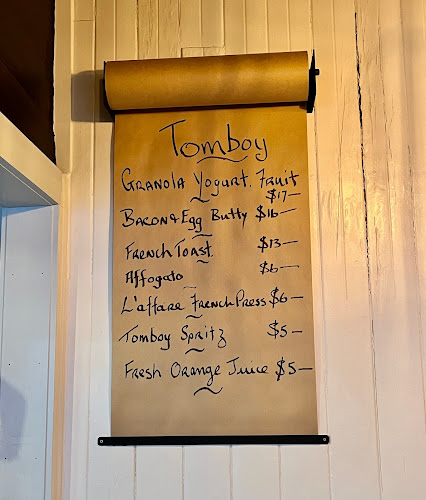 Tomboy
GRANOLA YOGURT. Fruit
$17—
BACON & EGG Butty $16—
FRENCH TOAST. $13—
Affogato $6—
L'affare FRENCH PRESS $6—
Tomboy Spritz $5—
FRESH ORANGE JUICE $5—